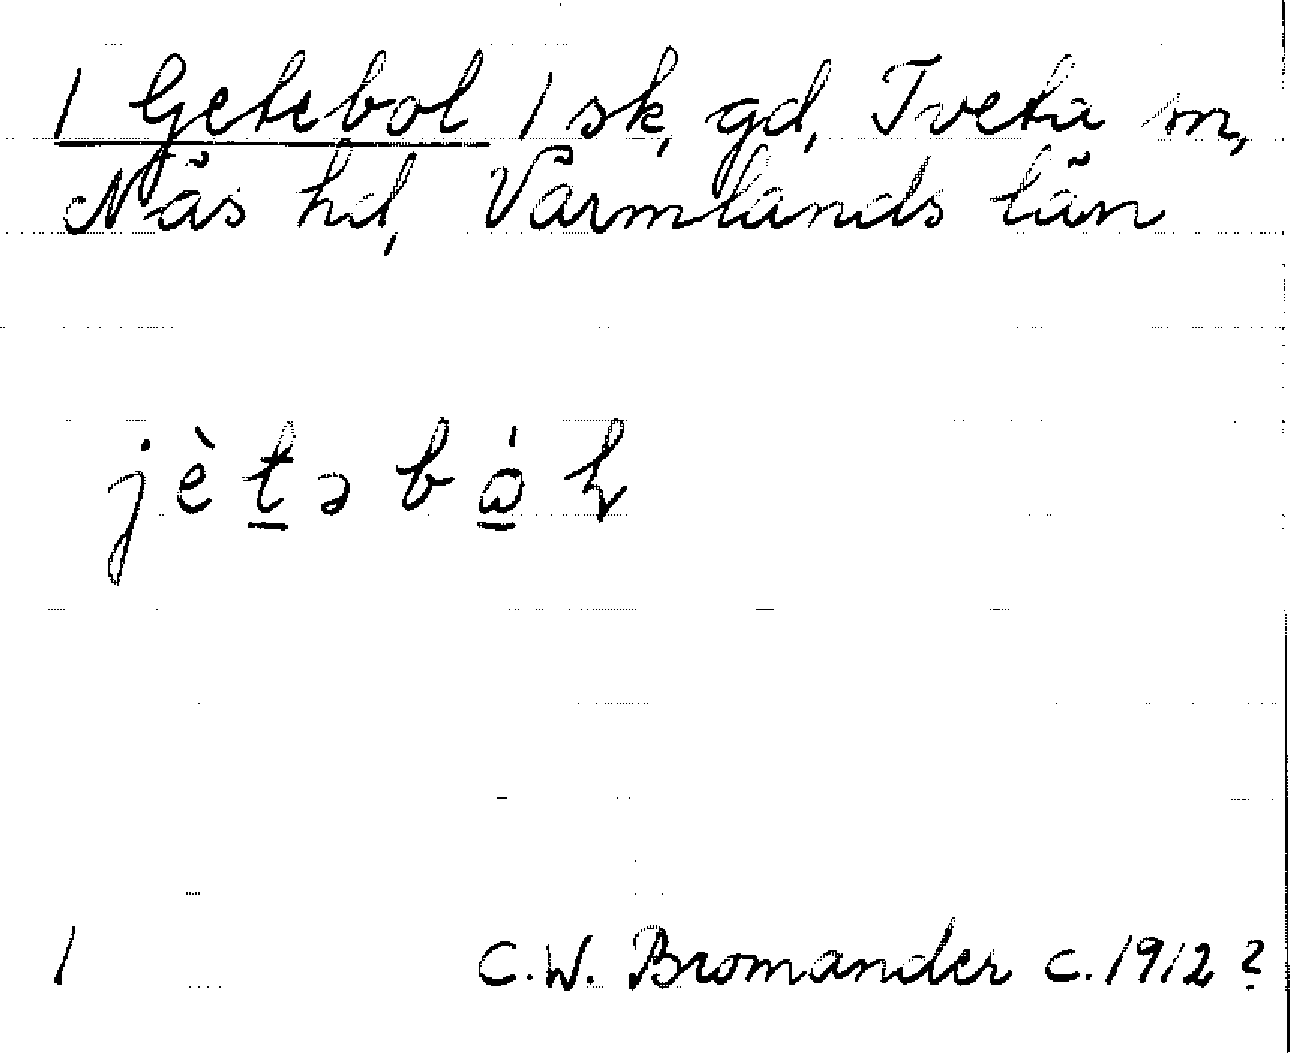 1 Getebol 1 sk, gd, Tveta sn,
Näs hd, Värmlands län
jètəbɷ́ɫ
1 C.W. Bromander c. 1912?